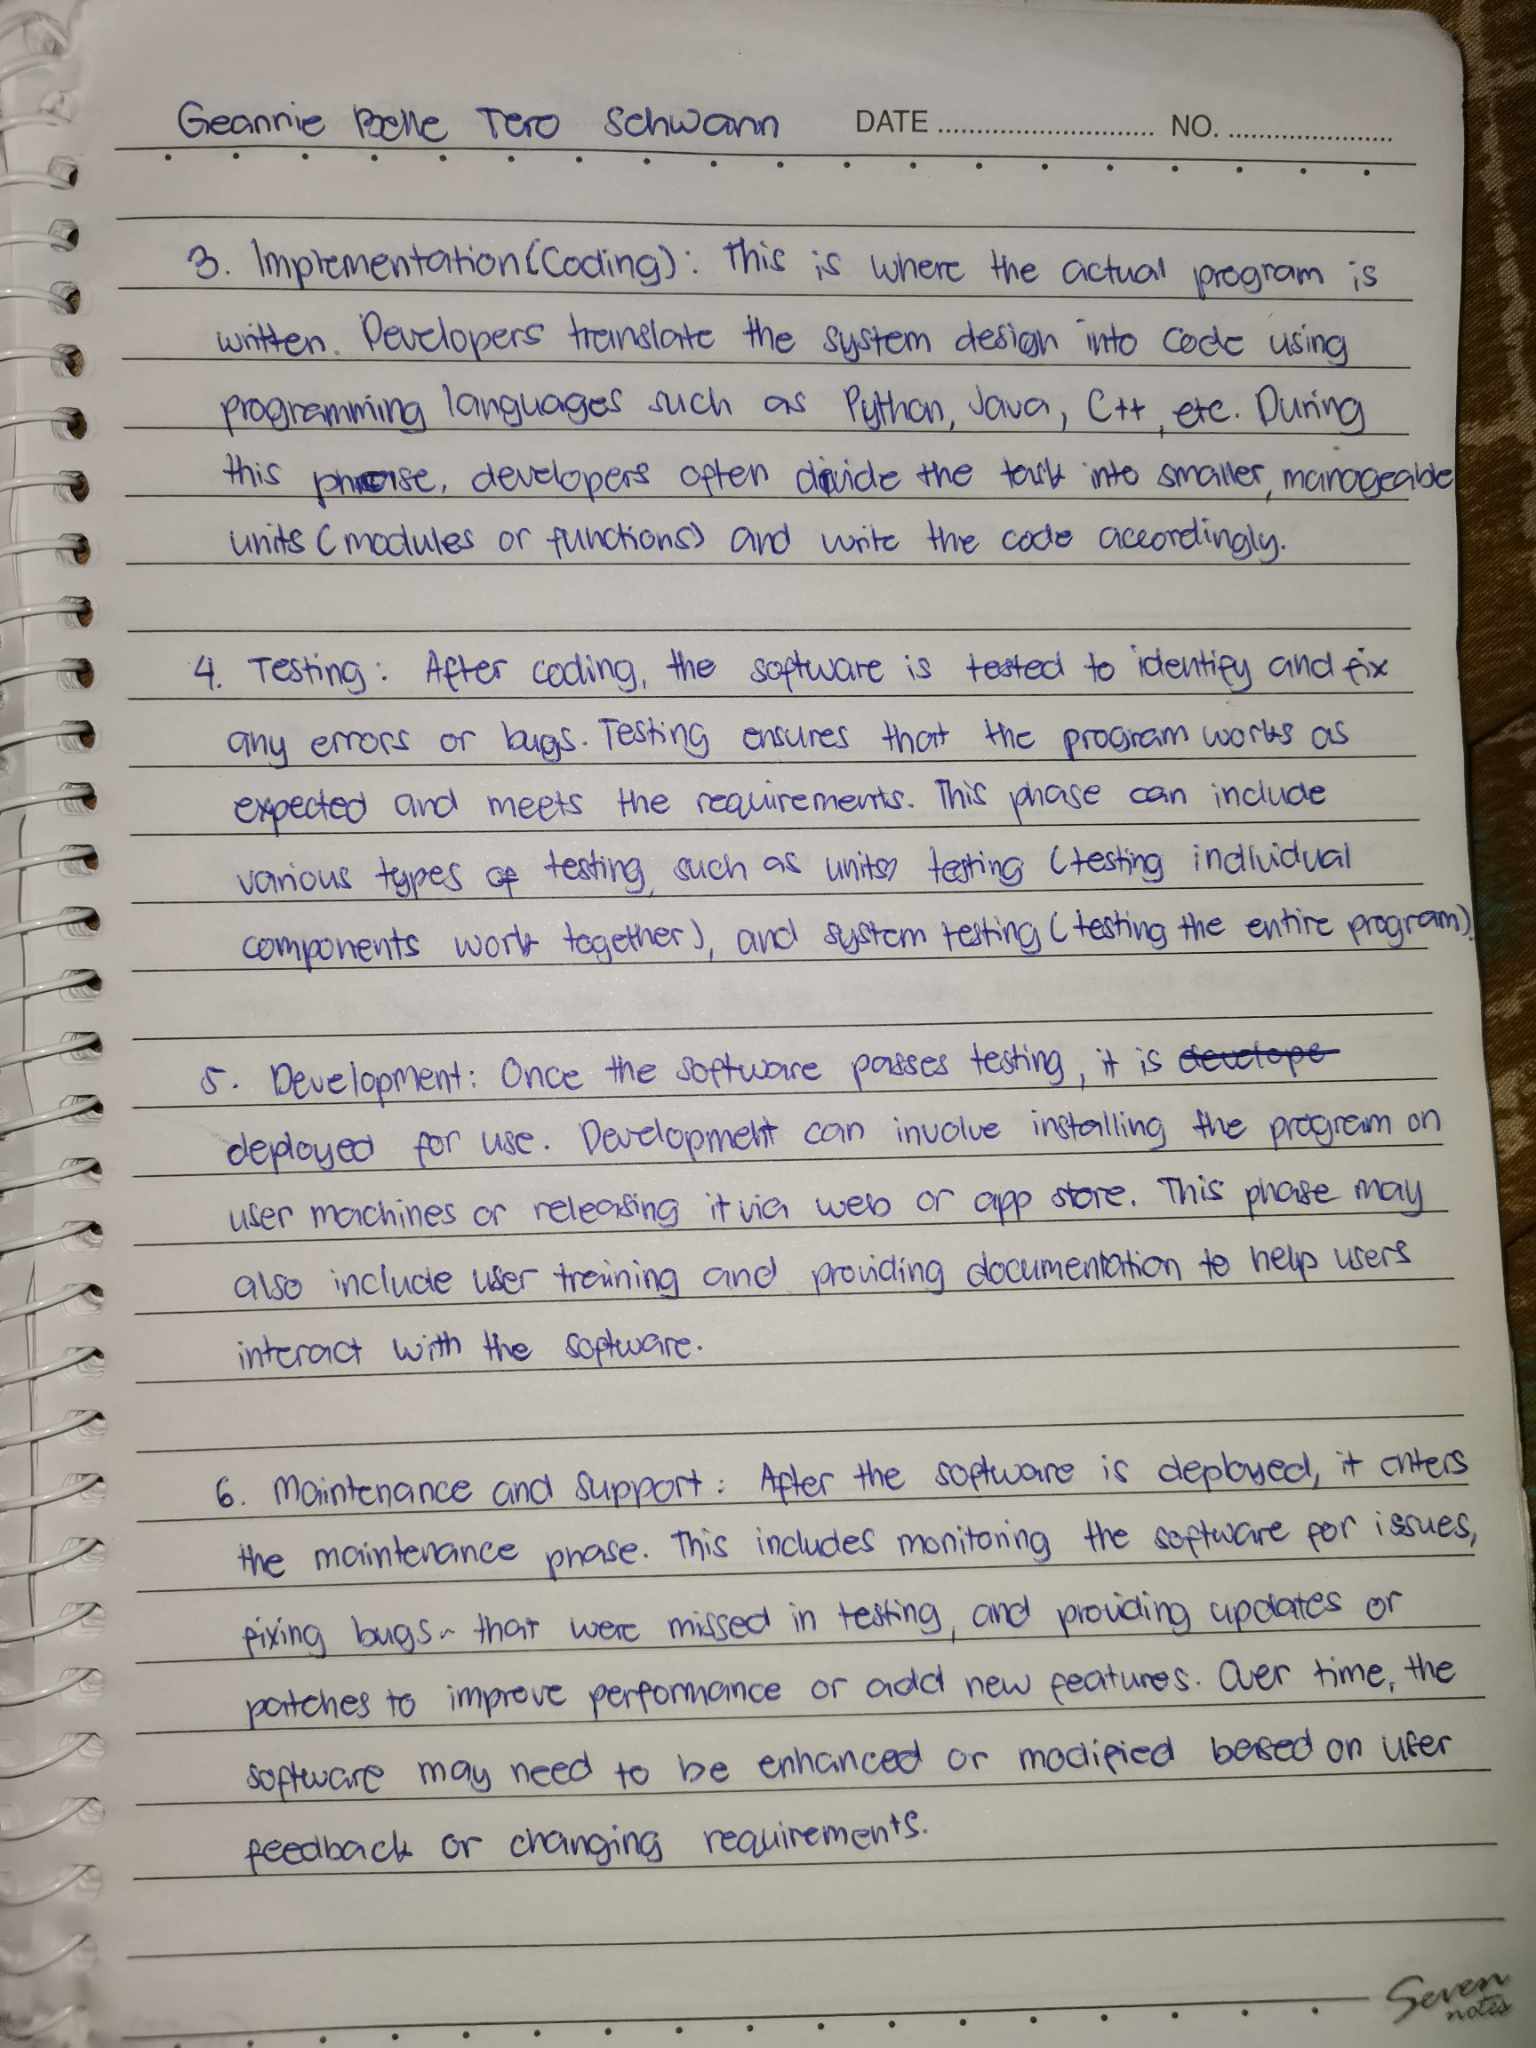 Geannie Belle Tero Schwann DATE ........................... NO. .....................
3. Implementation (Coding): This is where the actual program is
written. Developers translate the system design into code using
programming languages such as Python, Java, C++, etc. During
this phase, developers often divide the task into smaller, manageable
units (modules or functions) and write the code accordingly.
4. Testing: After coding, the software is tested to identify and fix
any errors or bugs. Testing ensures that the program works as
expected and meets the requirements. This phase can include
various types of testing, such as units testing (testing individual
components work together), and system testing (testing the entire program).
5. Development: Once the software passes testing, it is develope
deployed for use. Development can involve installing the program on
user machines or releasing it via web or app store. This phase may
also include user training and providing documentation to help users
interact with the software.
6. Maintenance and Support: After the software is deployed, it enters
the maintenance phase. This includes monitoring the software for issues,
fixing bugs that were missed in testing, and providing updates or
patches to improve performance or add new features. Over time, the
software may need to be enhanced or modified based on user
feedback or changing requirements.
Seven
notes